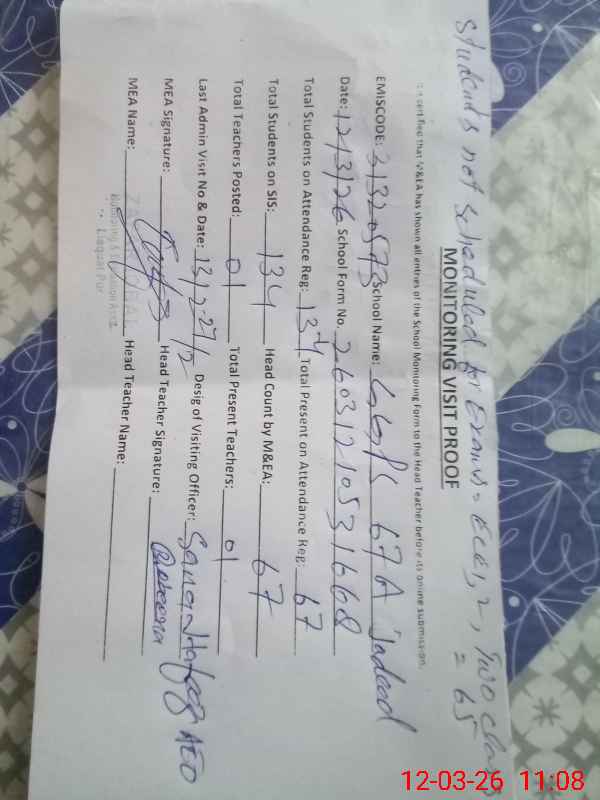 Students not scheduled for Exams = ECE, 1, 2, Two class
= 65
MONITORING VISIT PROOF
It is certified that M&EA has shown all entries of the School Monitoring Form to the Head Teacher before its online submission.
EMISCODE: 31320573 School Name: GGPS 67 A Jadeed
Date: 12/3/26 School Form No. 26031210531668
Total Students on Attendance Reg: 134 Total Present on Attendance Reg: 67
Total Students on SIS: 134 Head Count by M&EA: 67
Total Teachers Posted: 01 Total Present Teachers: 01
Last Admin Visit No & Date: 13/2-27/2 Desig of Visiting Officer: Sana Hafeez AEO
MEA Signature: Head Teacher Signature:
MEA Name: Head Teacher Name:
Liaqat Pur
12-03-26 11:08